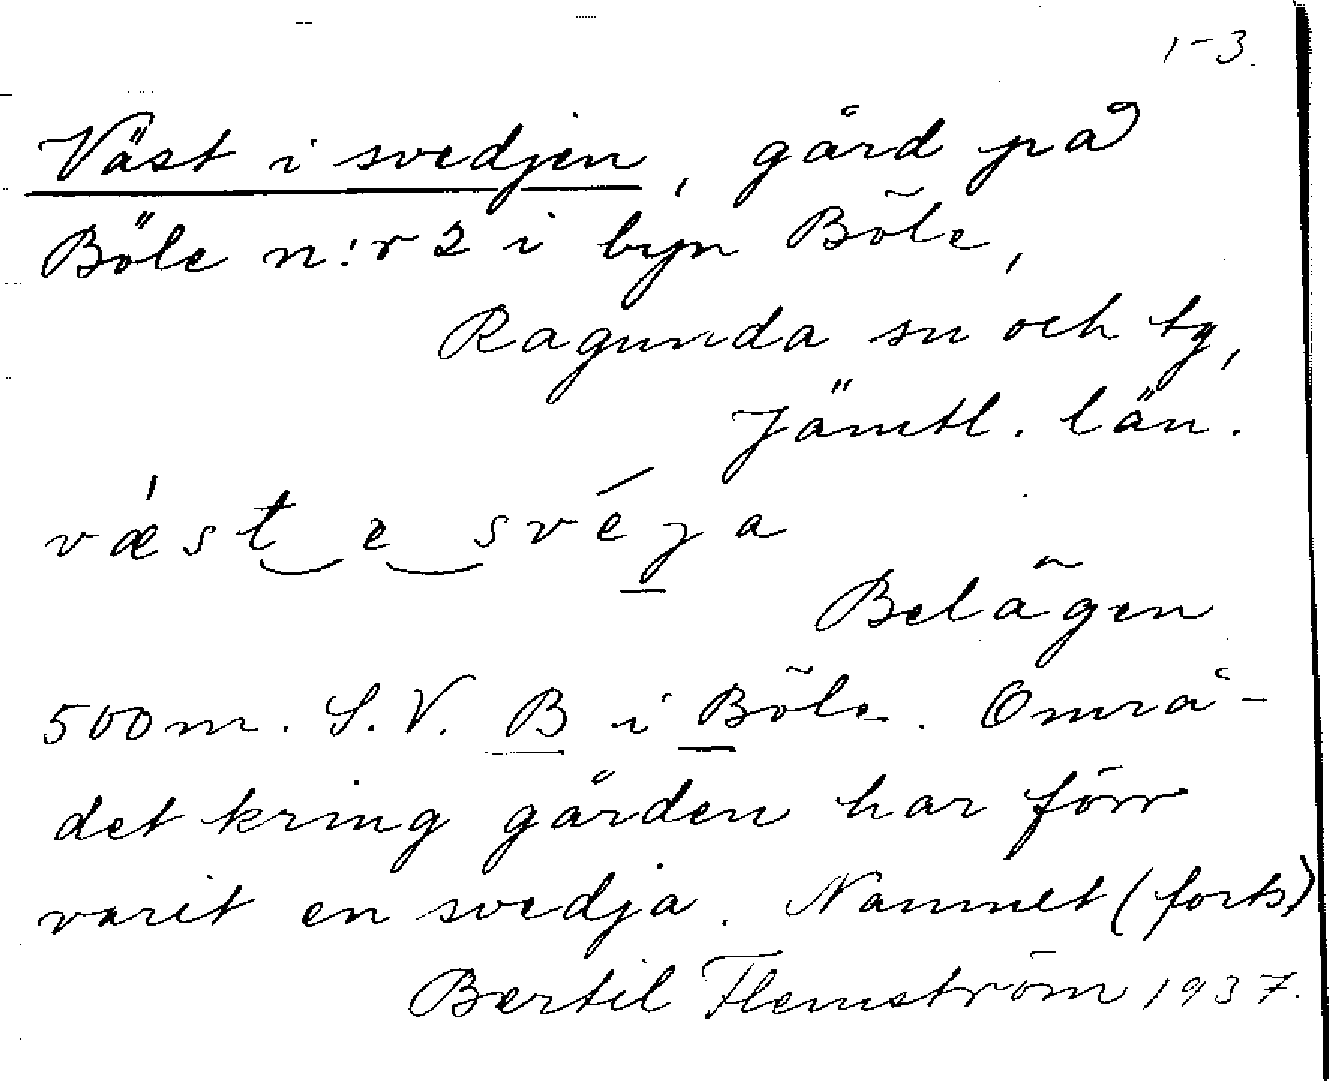 1-3.
Väst i svedjen, gård på
Böle n:r 2 i byn Böle,
Ragunda sn och tg,
Jämtl. län.
væst e svéja
Belägen
500 m. S.V. B i Böle. Områ-
det kring gården har förr
varit en svedja. Namnet (forts)
Bertil Flemström 1937.